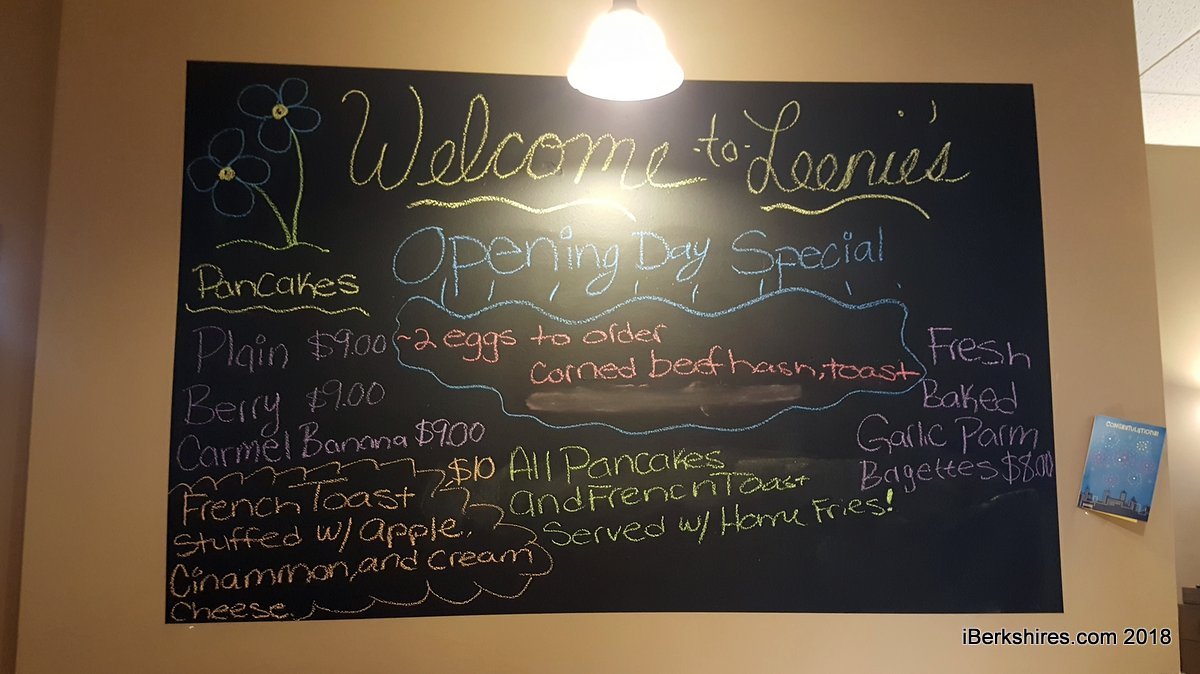 Welcome -to- Leenie's
Opening Day Special
Pancakes
Plain $9.00
Berry $9.00
Carmel Banana $9.00
~2 eggs to order
corned beef hash, toast
Fresh
Baked
Garlic Parm
Bagettes $8.00
$10
French Toast
Stuffed w/ apple,
Cinammon, and cream
cheese.
All Pancakes
and French Toast
Served w/ Home Fries!
CONGRATULATIONS!
iBerkshires.com 2018